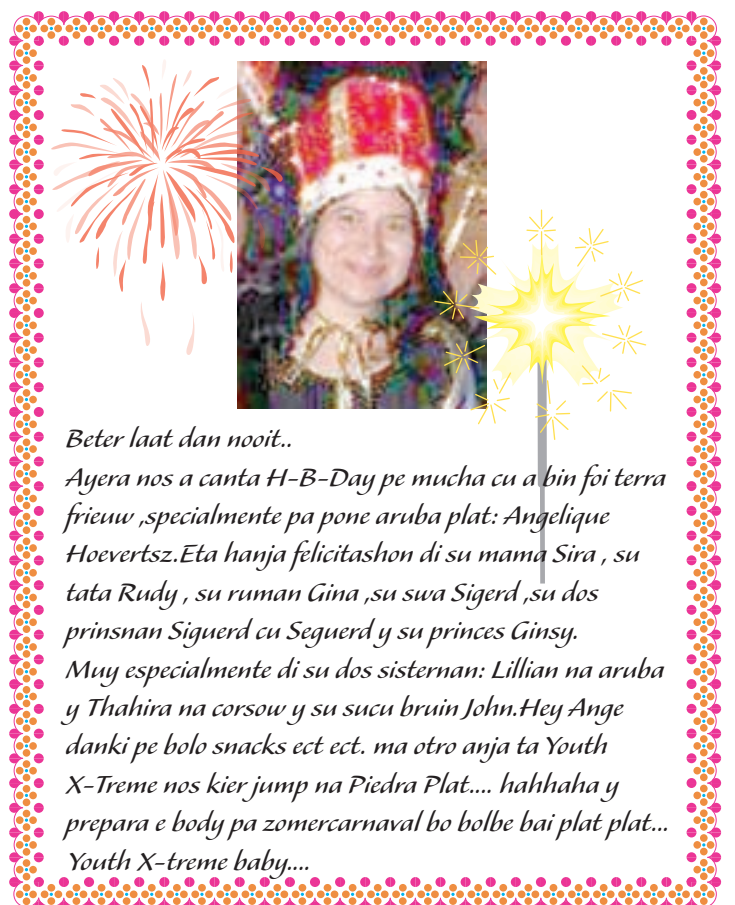 Beter laat dan nooit..
Ayera nos a canta H-B-Day pe mucha cu a bin foi terra
frieuw ,specialmente pa pone aruba plat: Angelique
Hoevertsz.Eta hanja felicitashon di su mama Sira , su
tata Rudy , su ruman Gina ,su swa Sigerd ,su dos
prinsnan Siguerd cu Seguerd y su princes Ginsy.
Muy especialmente di su dos sisternan: Lillian na aruba
y Thahira na corsow y su sucu bruin John.Hey Ange
danki pe bolo snacks ect ect. ma otro anja ta Youth
X-Treme nos kier jump na Piedra Plat.... hahhaha y
prepara e body pa zomercarnaval bo bolbe bai plat plat...
Youth X-treme baby....